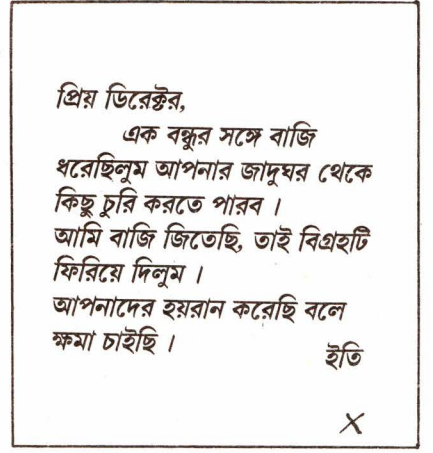 প্রিয় ডিরেক্টর,
এক বন্ধুর সঙ্গে বাজি
ধরেছিলুম আপনার জাদুঘর থেকে
কিছু চুরি করতে পারব ।
আমি বাজি জিতেছি, তাই বিগ্রহটি
ফিরিয়ে দিলুম ।
আপনাদের হয়রান করেছি বলে
ক্ষমা চাইছি ।
ইতি
X